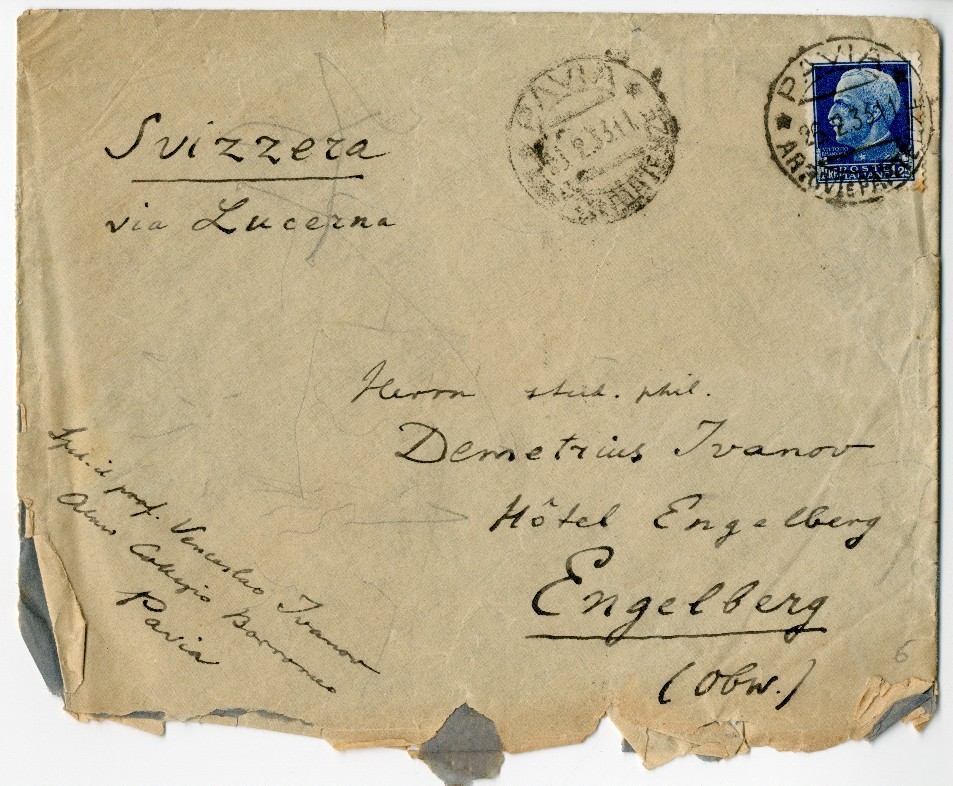 Svizzera
via Lucerna
PAVIA
PAVIA
POSTE
ITALIANE
Herrn stud. phil.
Demetrius Ivanov
Hôtel Engelberg
Engelberg
(Obw.)
Sped. il prof. Venceslao Ivanov
Almo Collegio Borromeo
Pavia
6